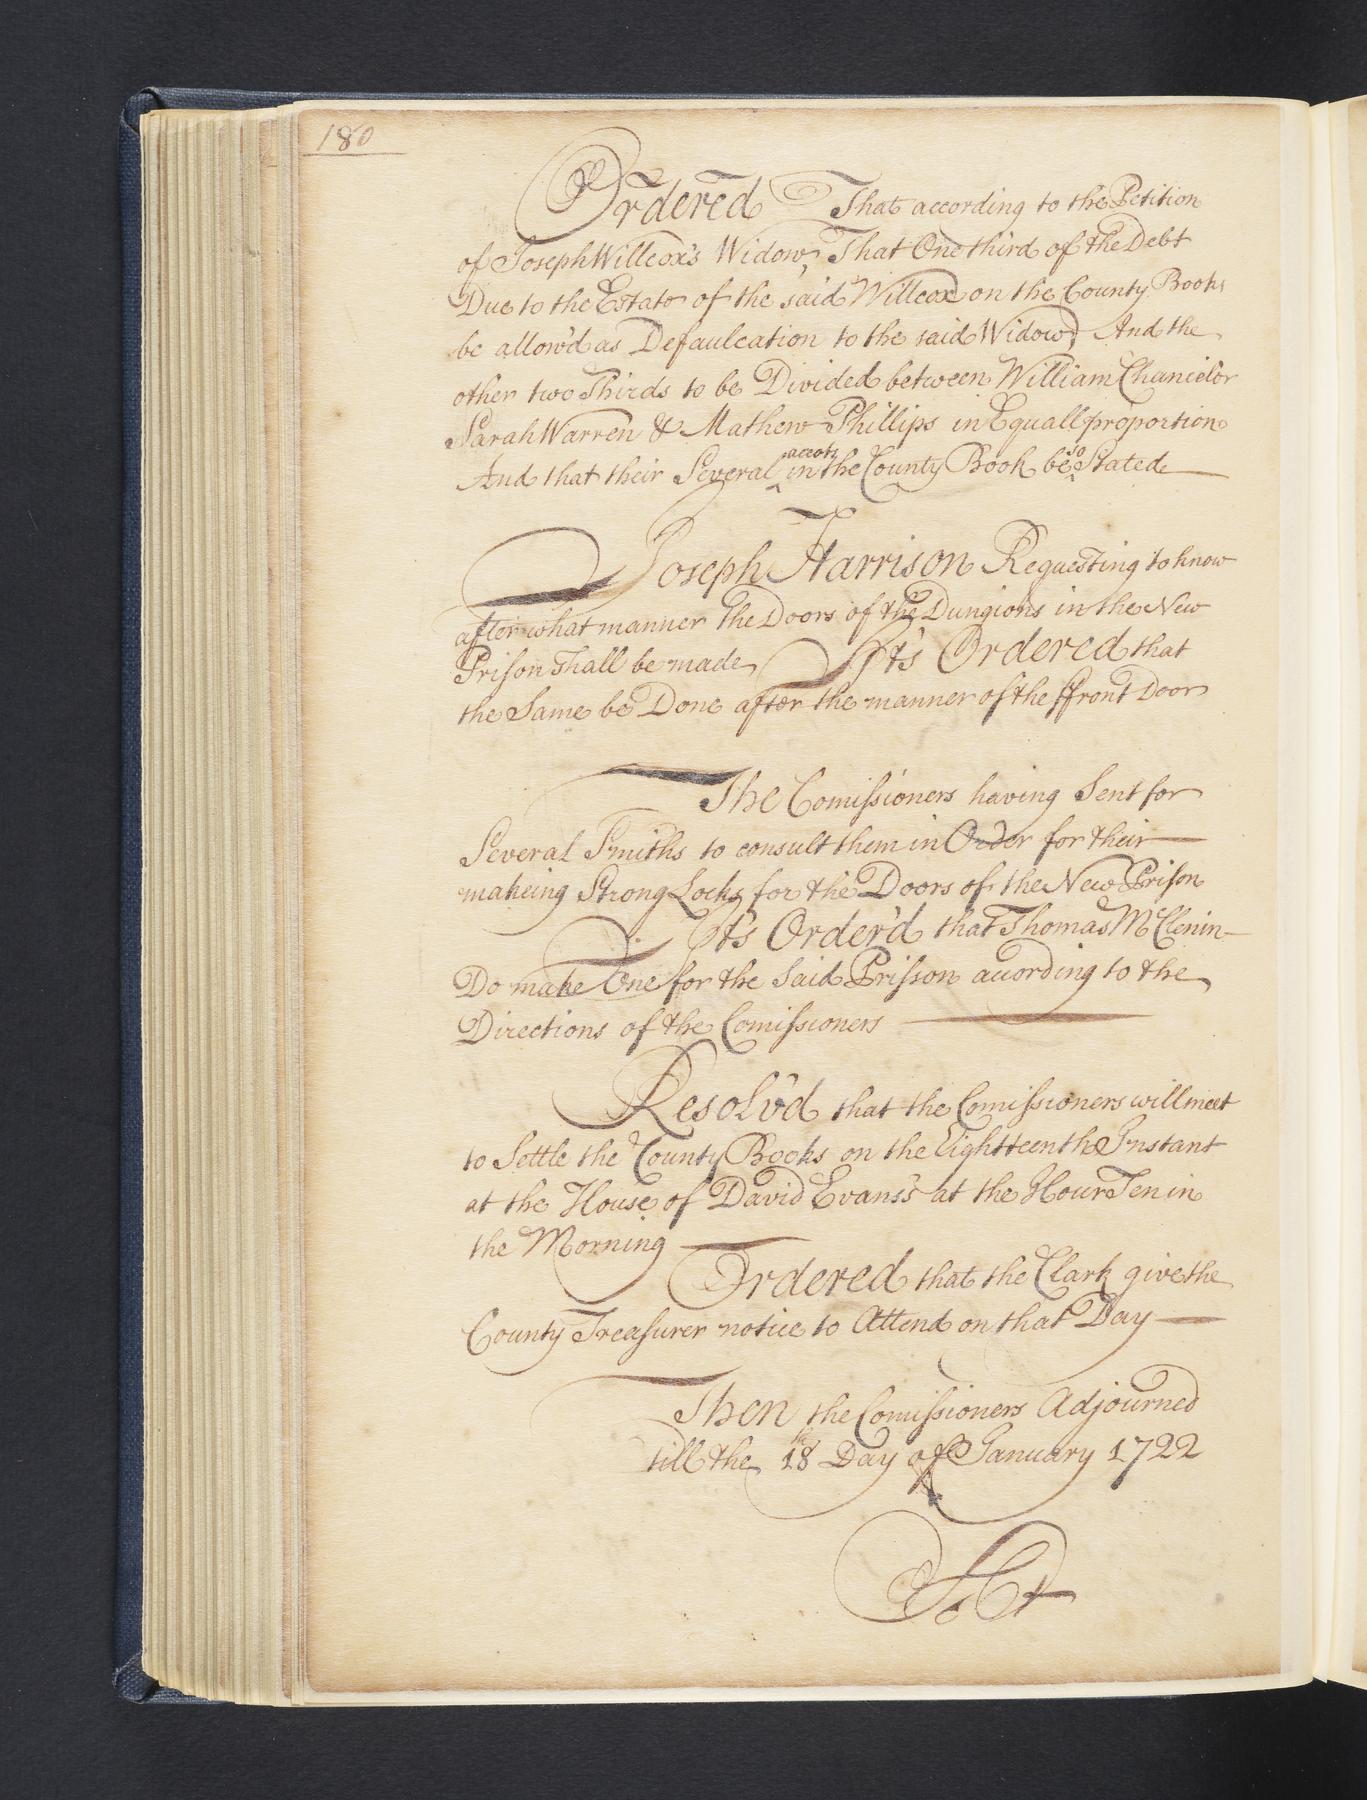 180
Ordered That according to the Petition
of Joseph Willcox's Widow, That One third of the Debt
Due to the Estate of the said Willcox on the County Books
be allow'd as Defaulcation to the said Widow, And the
other two Thirds to be Divided between William Chancelor
Sarah Warren & Mathew Phillips in Equall proportion
And that their Several accots in the County Book be so Stated
Joseph Harrison Requesting to know
after what manner the Doors of the Dungions in the New
Prison shall be made, It's Ordered that
the Same be Done after the manner of the ffront Door
The Comissioners having Sent for
Several Smiths to consult them in Order for their
makeing Strong Locks for the Doors of the New Prison
It's Order'd that Thomas McClenin
Do make One for the Said Prisson acording to the
Directions of the Comissioners
Resolv'd that the Comissioners will meet
to Settle the County Books on the Eightteenth Instant
at the House of David Evans's at the Hour Ten in
the Morning
Ordered that the Clark give the
County Treasurer notice to Attend on that Day
Then the Comissioners Adjourned
till the 18th Day of January 1722